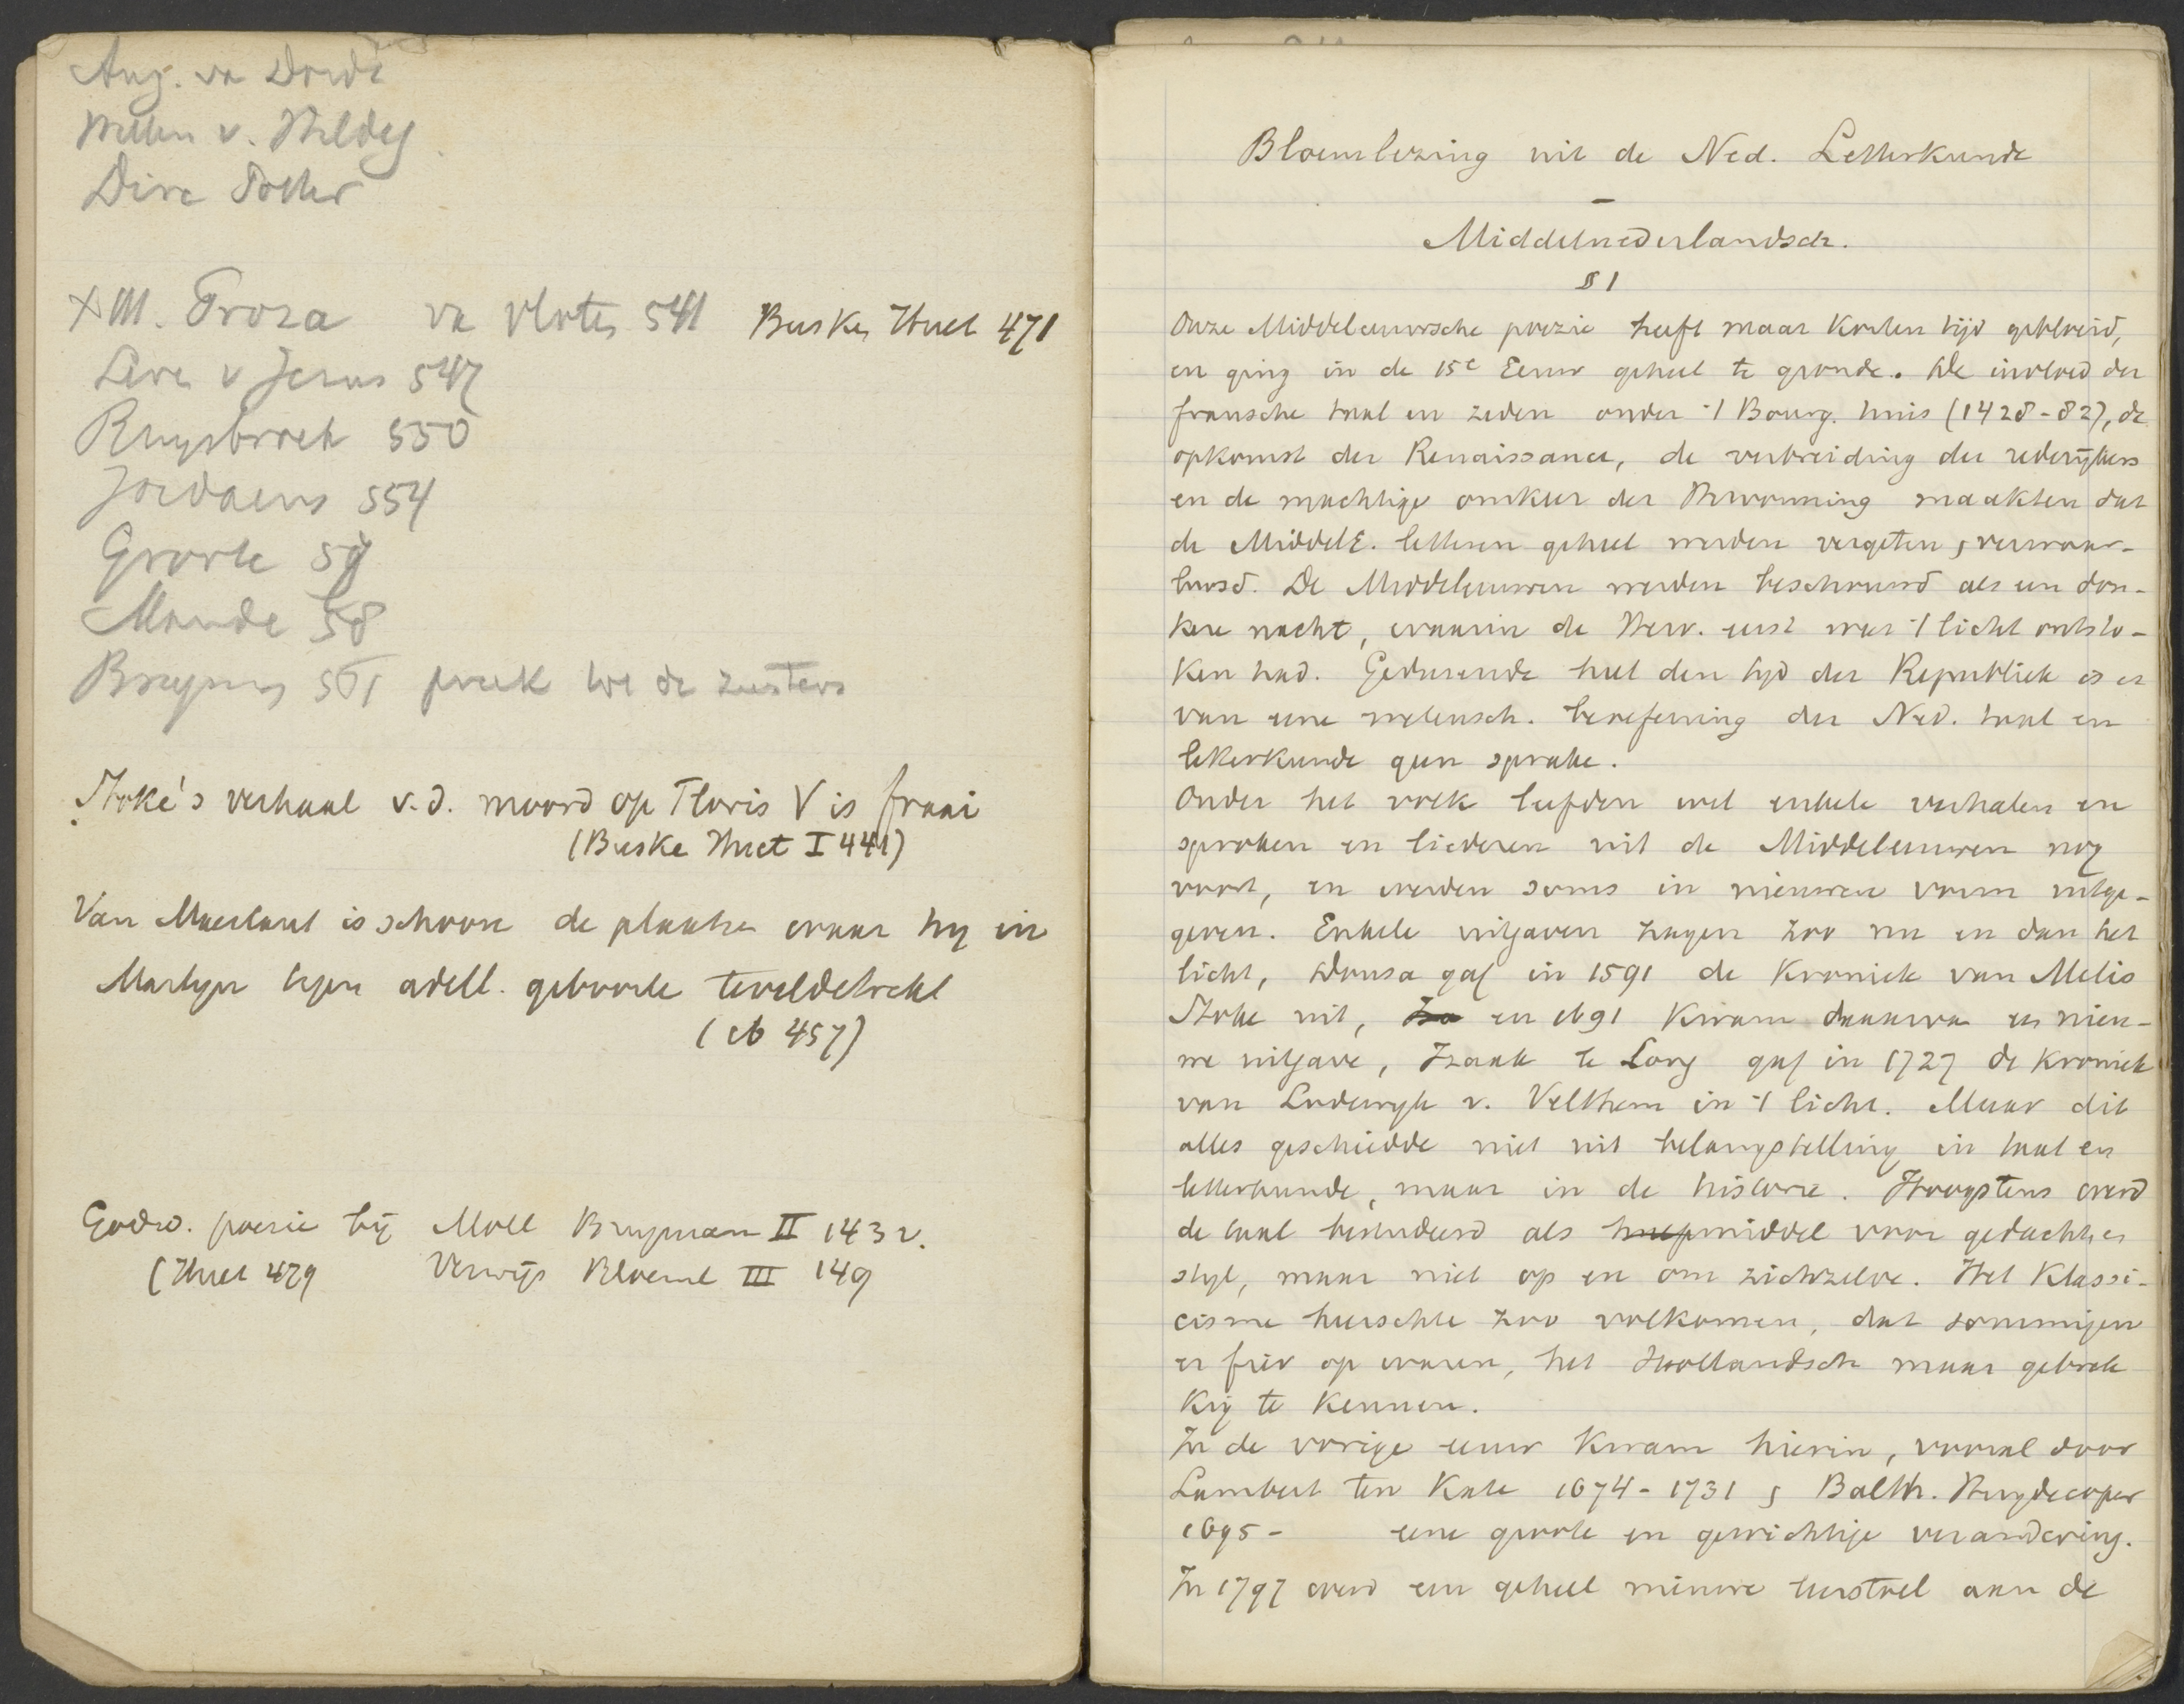 Aug. va Dordt
Willem v. Hildeg
Dirc Potter
XIII. Proza va Vloten 541 Busken Huet 471
Leven v Jezus 547
Ruysbroek 550
Jordaens 554
Groote 57
Mande 58
Brugman 561 preek to de zusters
Stoke's verhaal v.d. moord op Floris V is fraai
(Buske Huet I 441)
Van Maerlant is schoon de plaatse waar hij in
Martyn tegen adell. geboorte te velde trekt
(ib 457)
Godsd. poezie bij Moll Brugman II 143 v.
(Huet 479 Verwijs Bloeml III 149
Bloemlezing uit de Ned. Letterkunde
–
Middelnederlandsch.
§ 1
Onze Middeleeuwsche poezie heeft maar korten tijd gebloeid,
en ging in de 15e Eeuw geheel te gronde. De invloed der
fransche taal en zeden onder 't Bourg. huis (1428-82), de
opkomst der Renaissance, de verbreiding der rederijkers
en de machtige omkeer der Hervorming maakten dat
de MiddelE. letteren geheel werden vergeten & verwaar-
loosd. De Middeleeuwen werden beschouwd als een don-
kere nacht, waarin de Herv. eerst weer 't licht ontsto-
ken had. Gedurende heel den tijd der Republiek is er
van eene wetensch. beoefening der Ned. taal en
letterkunde geen sprake.
Onder het volk leefden wel enkele verhalen en
sproken en liederen uit de Middeleeuwen nog
voort, en werden soms in nieuwere vorm uitge-
geven. Enkele uitgaven zagen zoo nu en dan het
licht, Dousa gaf in 1591 de Kroniek van Melis
Stoke uit, en 1691 kwam daarva en nieu-
we uitgave, Izaak le Long gaf in 1727 de Kroniek
van Lodewyk v. Velthem in 't licht. Maar dit
alles geschiedde niet uit belangstelling in taal en
letterkunde, maar in de historie. Hoogstens werd
de taal bestudeerd als hulpmiddel voor gedachte en
styl, maar niet op en om zichzelve. Het Klassi-
cisme heerschte zoo volkomen, dat sommigen
er fier op waren, het Hollandsch maar gebrek
kig te kennen.
In de vorige eeuw kwam hierin, vooral door
Lambert ten Kate 1674-1731 & Balth. Huydecoper
1695- eene groote en gewichtige verandering.
In 1797 werd een geheel nieuwe leerstoel aan de